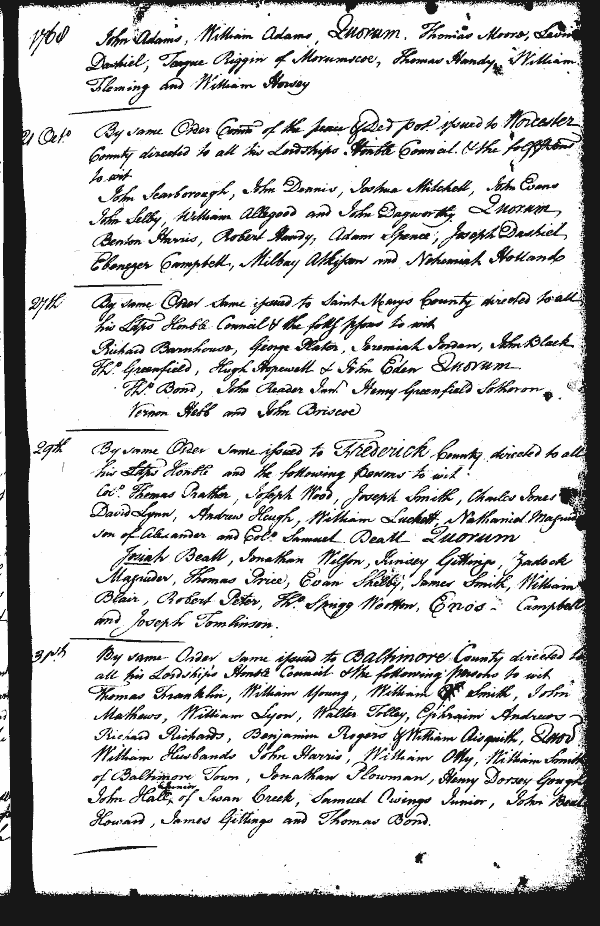 1768 John Adams, William Adams, Quorum. Thomas Moore, Levin
Dashiel, Teague Riggin of Morumsco, Thomas Handy, William
Fleming and William Horsey
21 Octr. By same Order Comn. of the peace & Ded pot. issued to Worcester
County directed to all his Lordships Honble Council & the
to wit
John Scarborough, John Dennis, Joshua Mitchell, John Evans
John Selby, William Allegood and John Dagworthy Quorum
Benton Harris, Robert Handy, Adam Spence, Joseph Dashiel
Ebenezer Campbell, Milbay Atkisson and Nehemiah Holland
27th By same Order same issued to Saint Marys County directed to all
his Ldps Honble Council & the follg psons to wit
Richard Barnhouse, George Plater, Jeremiah Jordan, John Black
Ths. Greenfield, Hugh Hopewell & John Eden Quorum
Ths. Bond, John Reader Junr. Henry Greenfield Sotheron
Vernon Hebb and John Briscoe
29th By same Order same issued to Frederick County directed to all
his Ldps Honble and the following persons to wit
Col. Thomas Prather, Joseph Wood, Joseph Smith, Charles Jones
David Lynn, Andrew Heugh, William Luckett, Nathaniel Magruder
son of Alexander and Col. Samuel Beall Quorum
Josiah Beall, Jonathan Wilson, Kinsey Gittings, Zadock
Magruder, Thomas Price, Evan Shelby, James Smith, William
Blair, Robert Peter, Ths. Sprigg Wootton, Enos Campbell
and Joseph Tomlinson.
By same Order same issued to Baltimore County directed to
all his Lordships Honble Council & the following persons to wit
Thomas Franklin, William Young, William Smith, John
Mathews, William Lyon, Walter Tolley, Ephraim Andrews
Richard Richards, Benjamin Rogers & William Aisquith,
William Husbands John Harris, William Otty, William Smith
of Baltimore Town, Jonathan Plowman, Henry Dorsey Gough
John Hall, of Swan Creek, Samuel Owings Junior, John Beal
Howard, James Gittings and Thomas Bond.